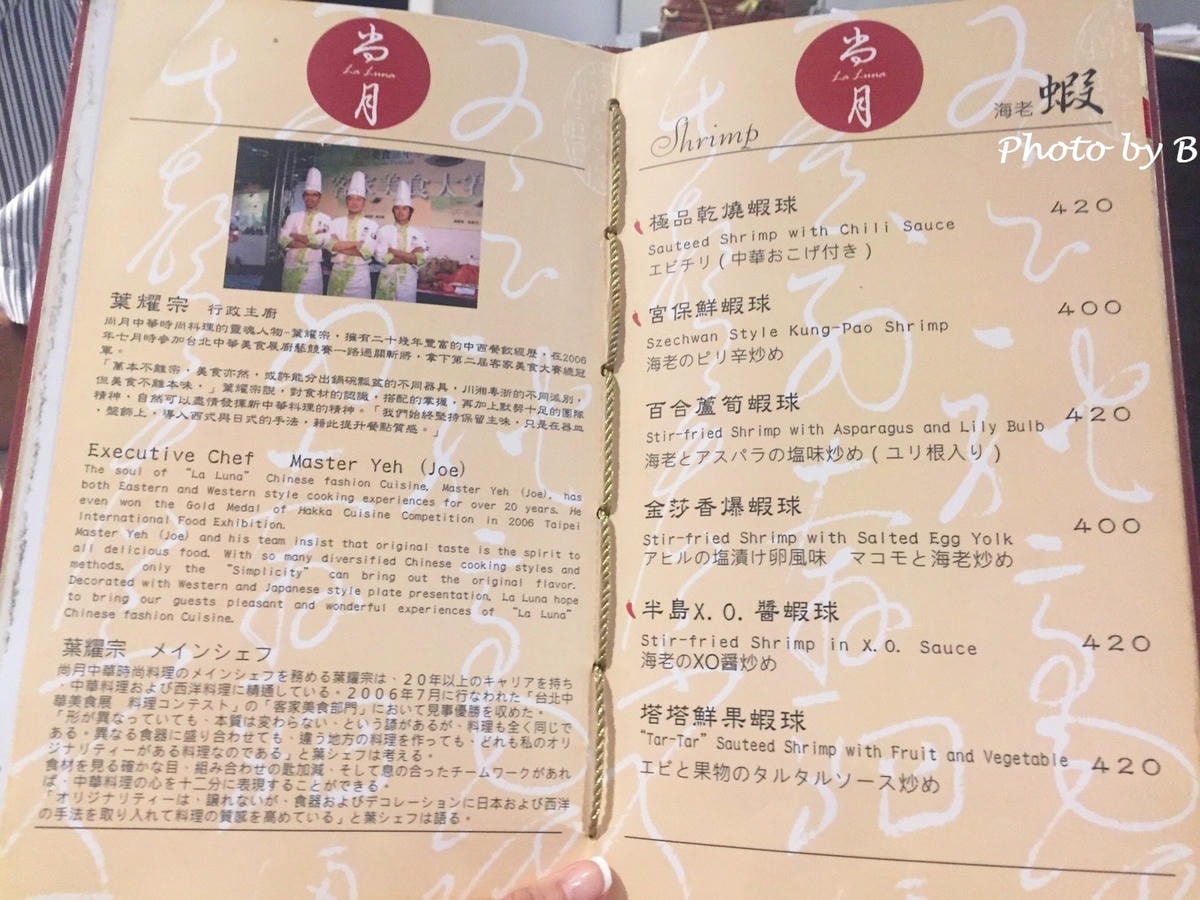 尚
La Luna
月
客家美食大
葉耀宗 行政主廚
尚月中華時尚料理的靈魂人物-葉耀宗，擁有二十幾年豐富的中西餐飲經歷，在2006
年七月時參加台北中華美食展廚藝競賽一路過關斬將，拿下第二屆客家美食大賽總冠
軍。
「萬本不離宗，美食亦然，或許能分出鍋碗瓢盆的不同器具，川湘粵浙的不同派別，
但美食不離本味，」葉耀宗說，對食材的認識，搭配的掌握，再加上默契十足的團隊
精神，自然可以盡情發揮新中華料理的精神。「我們始終堅持保留主味，只是在器皿
，盤飾上，導入西式與日式的手法，藉此提升餐點質感。」
Executive Chef Master Yeh (Joe)
The soul of "La Luna" Chinese fashion Cuisine, Master Yeh (Joe), has
both Eastern and Western style cooking experiences for over 20 years. He
even won the Gold Medal of Hakka Cuisine Competition in 2006 Taipei
International Food Exhibition.
Master Yeh (Joe) and his team insist that original taste is the spirit to
all delicious food. With so many diversified Chinese cooking styles and
methods, only the "Simplicity" can bring out the original flavor.
Decorated with Western and Japanese style plate presentation, La Luna hope
to bring our guests pleasant and wonderful experiences of "La Luna"
Chinese fashion Cuisine.
葉耀宗 メインシェフ
尚月中華時尚料理のメインシェフを務める葉耀宗は、20年以上のキャリアを持ち
、中華料理および西洋料理に精通している。2006年7月に行なわれた「台北中
華美食展 料理コンテスト」の「客家美食部門」において見事優勝を収めた。
「形が異なっていても、本質は変わらない、という諺があるが、料理も全く同じで
ある。異なる食器に盛り合わせても、違う地方の料理を作っても、どれも私のオリ
ジナリティーがある料理なのである」と葉シェフは考える。
食材を見る確かな目、組み合わせの匙加減、そして息の合ったチームワークがあれ
ば、中華料理の心を十二分に表現することができる。
「オリジナリティーは、譲れないが、食器およびデコレーションに日本および西洋
の手法を取り入れて料理の質感を高めている」と葉シェフは語る。
尚
La Luna
月
Shrimp
海老 蝦
Photo by B
極品乾燒蝦球 420
Sauteed Shrimp with Chili Sauce
エビチリ(中華おこげ付き)
宮保鮮蝦球 400
Szechwan Style Kung-Pao Shrimp
海老のピリ辛炒め
百合蘆筍蝦球 420
Stir-fried Shrimp with Asparagus and Lily Bulb
海老とアスパラの塩味炒め(ユリ根入り)
金莎香爆蝦球 400
Stir-fried Shrimp with Salted Egg Yolk
アヒルの塩漬け卵風味 マコモと海老炒め
半島X.O.醬蝦球 420
Stir-fried Shrimp in X.O. Sauce
海老のXO醤炒め
塔塔鮮果蝦球 420
"Tar-Tar" Sauteed Shrimp with Fruit and Vegetable
エビと果物のタルタルソース炒め